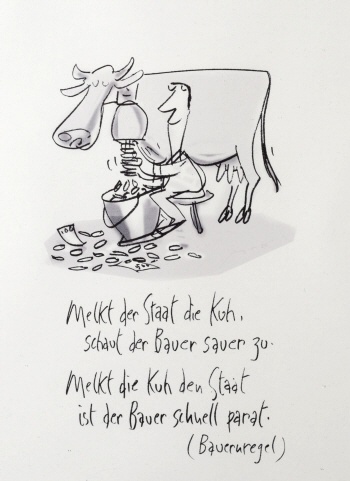 100
500
Melkt der Staat die Kuh,
schaut der Bauer sauer zu.
Melkt die Kuh den Staat
ist der Bauer schnell parat.
(Bauernregel)